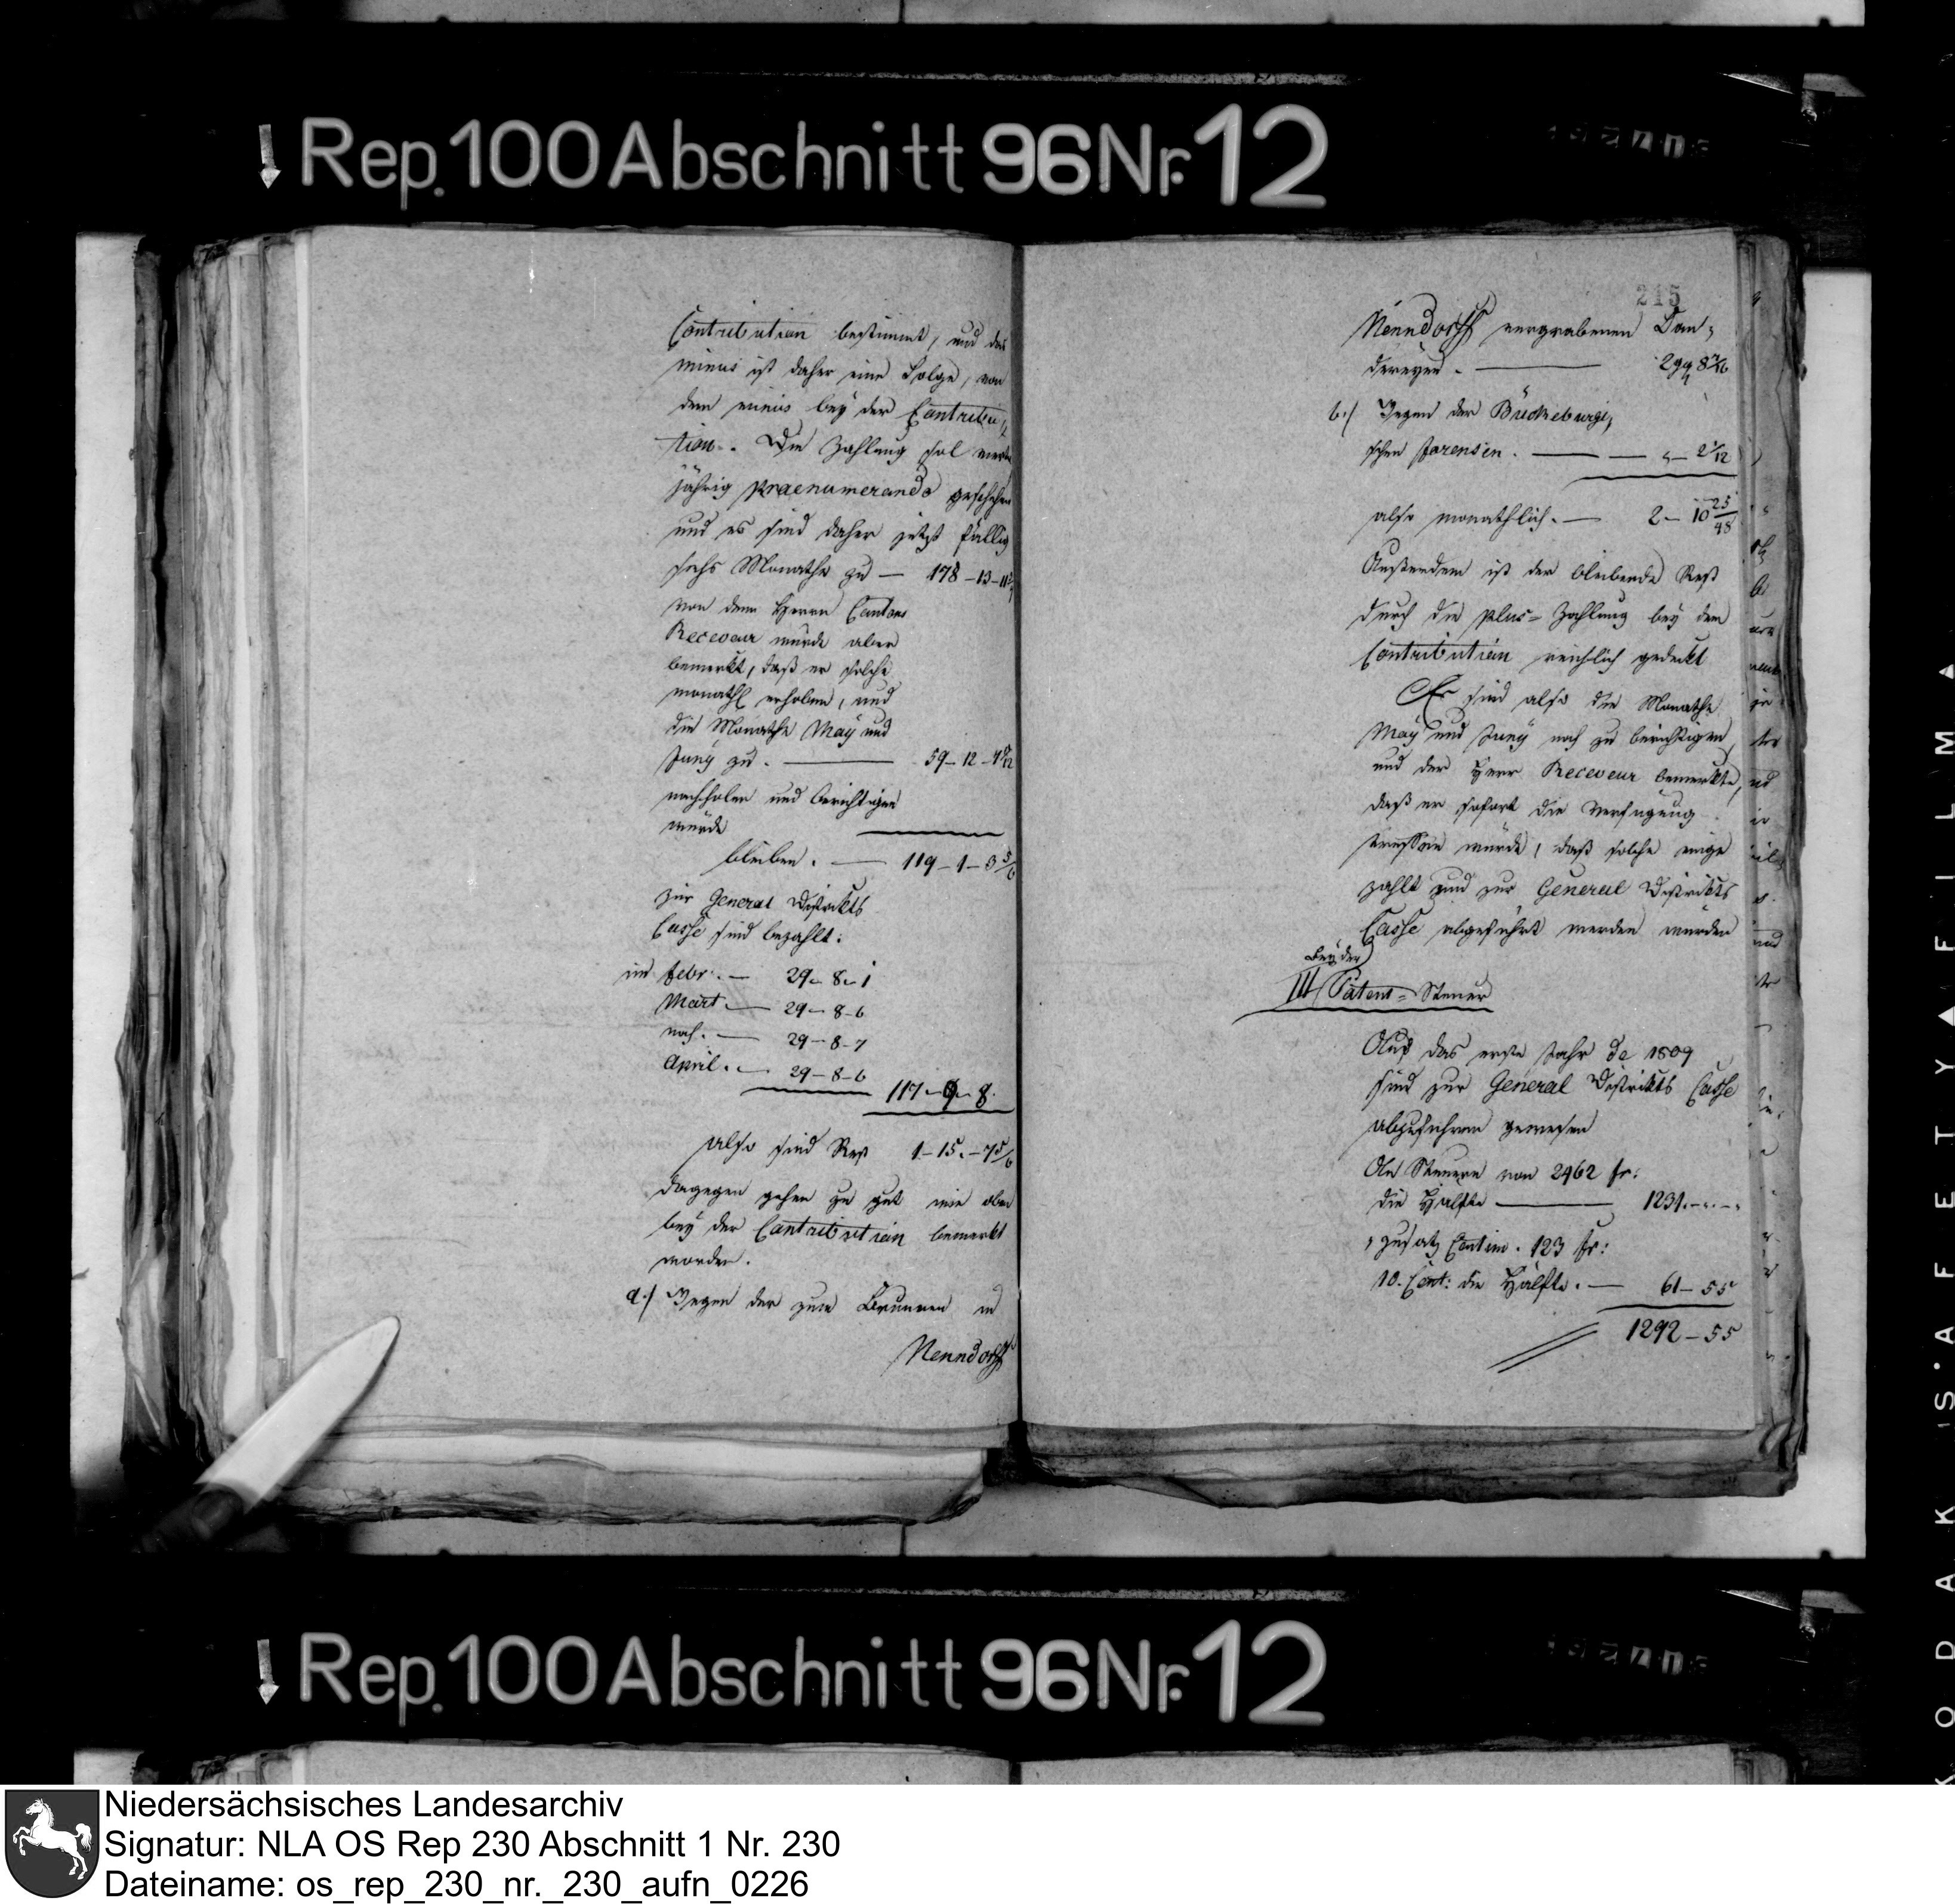 Rep. 100 Abschnitt 96 Nr. 12
Contribution bestimmt, und das
minus ist daher eine Folge, von
dem minus bey der Contribu-
tion. Die Zahlung sol viertel
jährig praenumerando geschehen
und es sind daher jetzt fällig
sechs Monathe zu — 178-13-11
von dem Herrn Cantons
Receveur wurde aber
bemerkt, daß er solche
monathl erhoben, und
die Monathe May und
Juny zu. — 59-12-
nachholen und berichtigen
würde
bleiben. — 119-1-3 5/6
zur General Distrikts
Casse sind bezahlt:
im Febr. — 29-8-1
Mart. — 29-8-6
noch. — 29-8-7
April. — 29-8-6
117-9-8.
also sind Rest 1-15-7 5/6
dagegen gehen zu gut wie oben
bey der Contribution bemerkt
worden.
a./ Wegen der zum Brunnen in
Nenndorff
215
Nenndorff vergrabenen Län-
dereyen. —
b./ Wegen der Bückeburgi-
schen Forensen. — — „ — 2 1/12
also monathlich. — 2 — 10 25/48
Ausserdem ist der bleibende Rest
durch die plus-Zahlung bey dem
Contribution reichlich gedeckt
Es sind also die Monathe
May und Juny noch zu berichtigen,
und der Herr Receveur bemerkte,
daß er sofort die Verfügung
treffen würde, daß solche einge
zahlt und zur General Distrikts
Casse abgeführt werden würden
Bey der
III Patent-Steuer
Auf das erste Jahr de 1809
sind zur General Distrikts Casse
abzuführen gewesen
An Steuern von 2462 fr:
die Hälfte — 1231.-„-„
zusatz Centim. 123 fr:
10. Cent: die Hälfte. — 61-55
1292-55
Rep. 100 Abschnitt 96 Nr. 12
KODAK 'S·A F E T Y ▲ F I L M ▲
Niedersächsisches Landesarchiv
Signatur: NLA OS Rep 230 Abschnitt 1 Nr. 230
Dateiname: os_rep_230_nr._230_aufn_0226